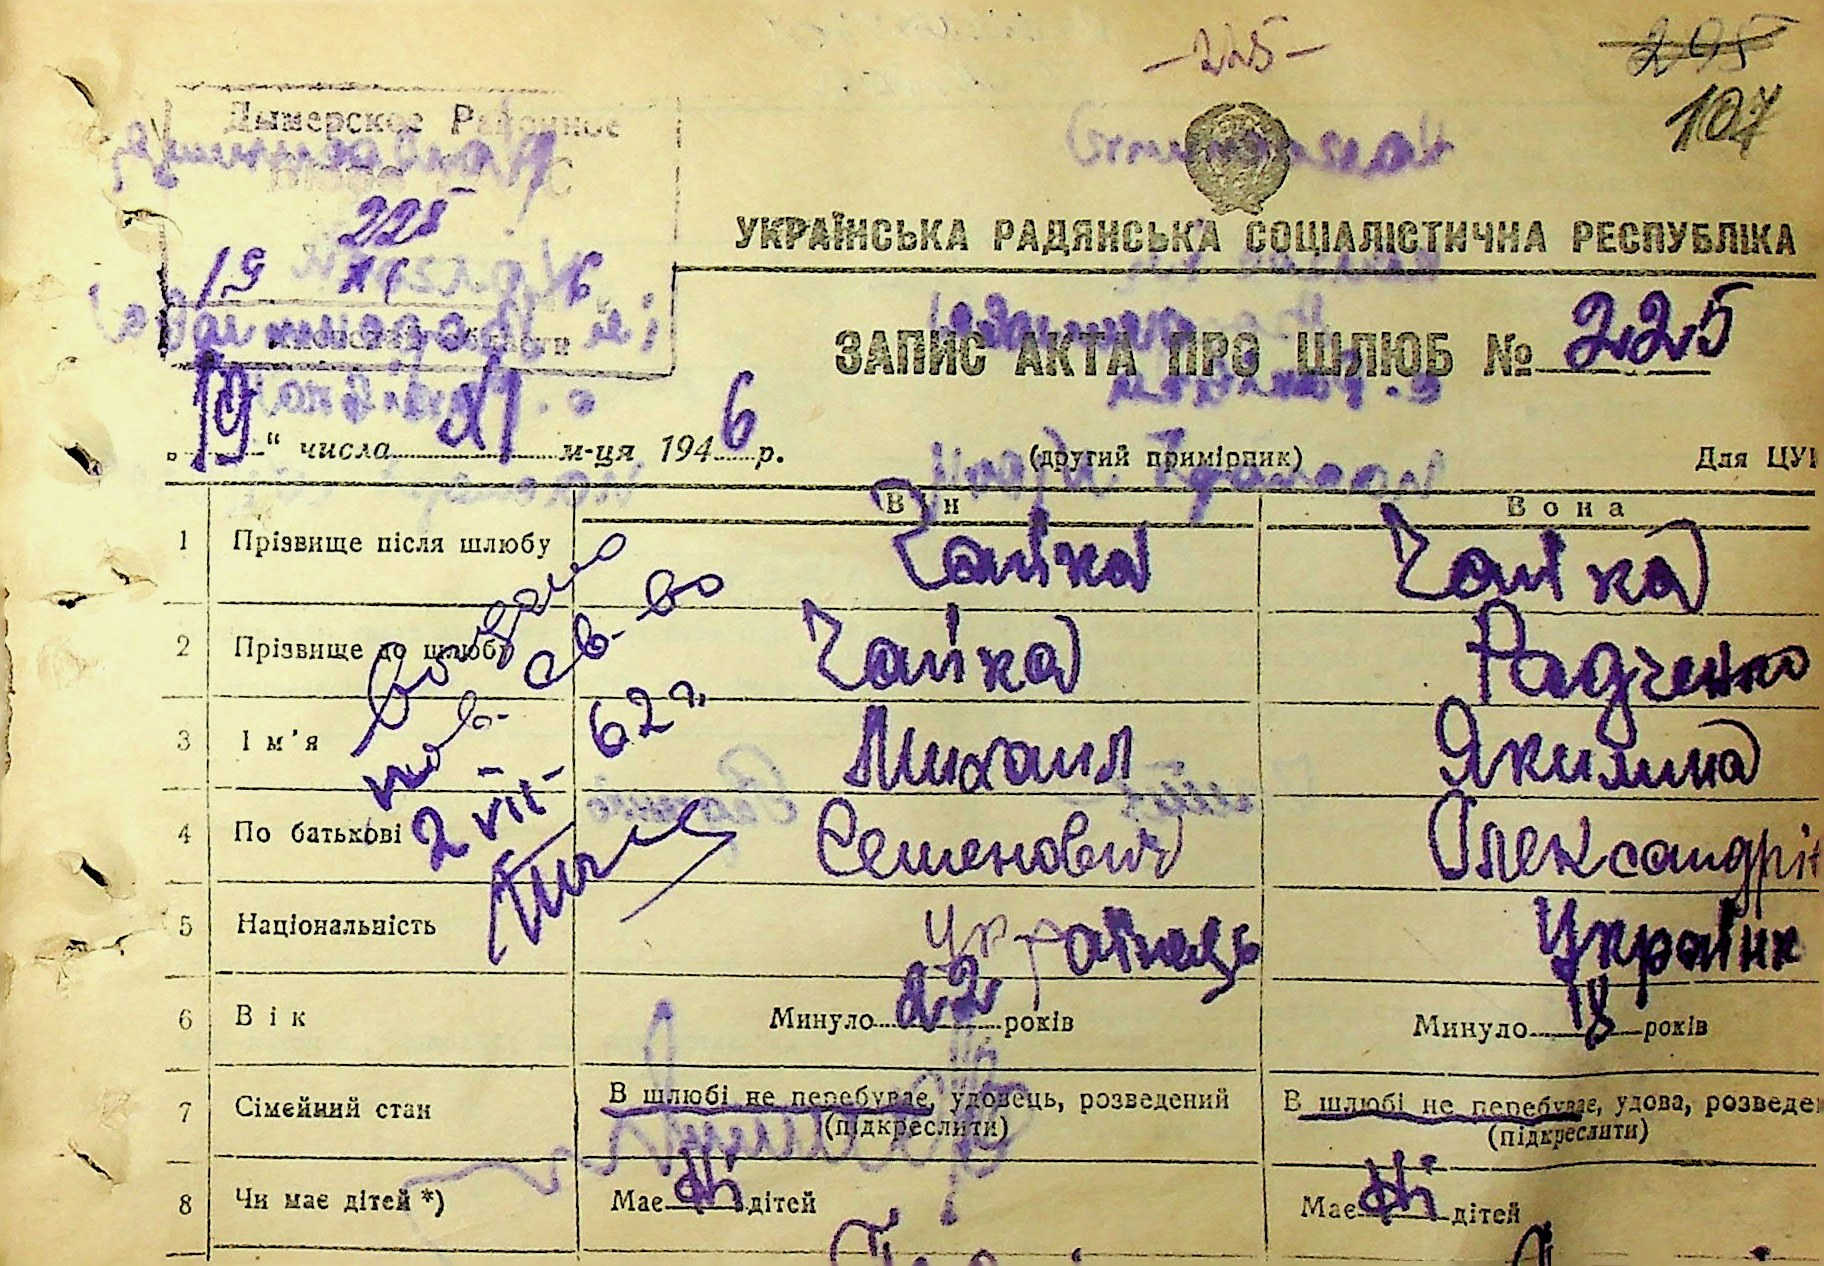 -225-
295
107
Дымерское Районное
225
19 XI 6
Киевской области
УКРАЇНСЬКА РАДЯНСЬКА СОЦІАЛІСТИЧНА РЕСПУБЛІКА
ЗАПИС АКТА ПРО ШЛЮБ № 225
„19“ числа XI м-ця 1946 р.
(другий примірник)
Для ЦУ
Він Вона
1 Прізвище після шлюбу Чайка Чайка
2 Прізвище до шлюбу Чайка Радченко
3 Ім’я Михаил Якилина
4 По батькові Семенович Олександрі
5 Національність Українець Українк
6 Вік Минуло 22 років Минуло 18 років
7 Сімейний стан В шлюбі не перебуває, удовець, розведений В шлюбі не перебуває, удова, розведе
(підкреслити) (підкреслити)
8 Чи має дітей *) Має ні дітей Має ні дітей
Выдано
пов. св-во
2 VII- 62 г.